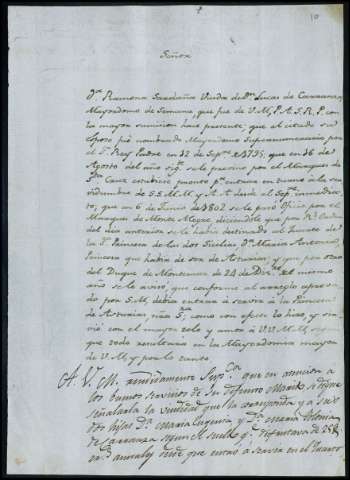 10
Señor
D.ª Ramona Saldaña Viuda de D.n Lucas de Carranza,
Mayordomo de Semana, que fue de V.M. P. A. L. R. P. con
la mayor sumision hace presente: que al citado su
esposo fue nombrado Mayordomo Supernumerario por
el S.r Rey Padre en 12 de Sep.re de 1795, que en 16 de
Agosto del año sig.te se le previno por el Marques de
S.ta Cruz entrar en turno a la ser
vidumbre de S.S. M.M. y A.A. desde el Sep.re inmedia
to, que en 6 de Junio de 1802 se le pasó Oficio por el
Marques de Monte Alegre diciendole que por R.l Orden
del dia anterior se le habia destinado al Quarto de
la S.ra Princesa de las dos Sicilias D.ª Maria Antonia,
Princesa que habia de ser de Asturias, y que por otro
del Duque de de 24 de Dic.re del mismo
año se le avisó, que conforme al arreglo aproba
do por S.M. debia entrar a servir à la Princesa
de Asturias como con efecto lo hizo, y sir
vió con el mayor zelo y amor à V.V. M.M. segun
que todo resultará en la Mayordomia mayor
de V.M. y por lo tanto
A. V. M. rendidamente Sup.ca que en atencion a
los buenos servicios de su difunto Marido se digne
señalarla la viudedad que la corresponda y a sus
dos hijas D.ª Maria Eugenia y D.ª Maria Antonia
de Carranza segun el sueldo q.e disfrutava de
r.s anuales desde que entró à servir en el Quarto